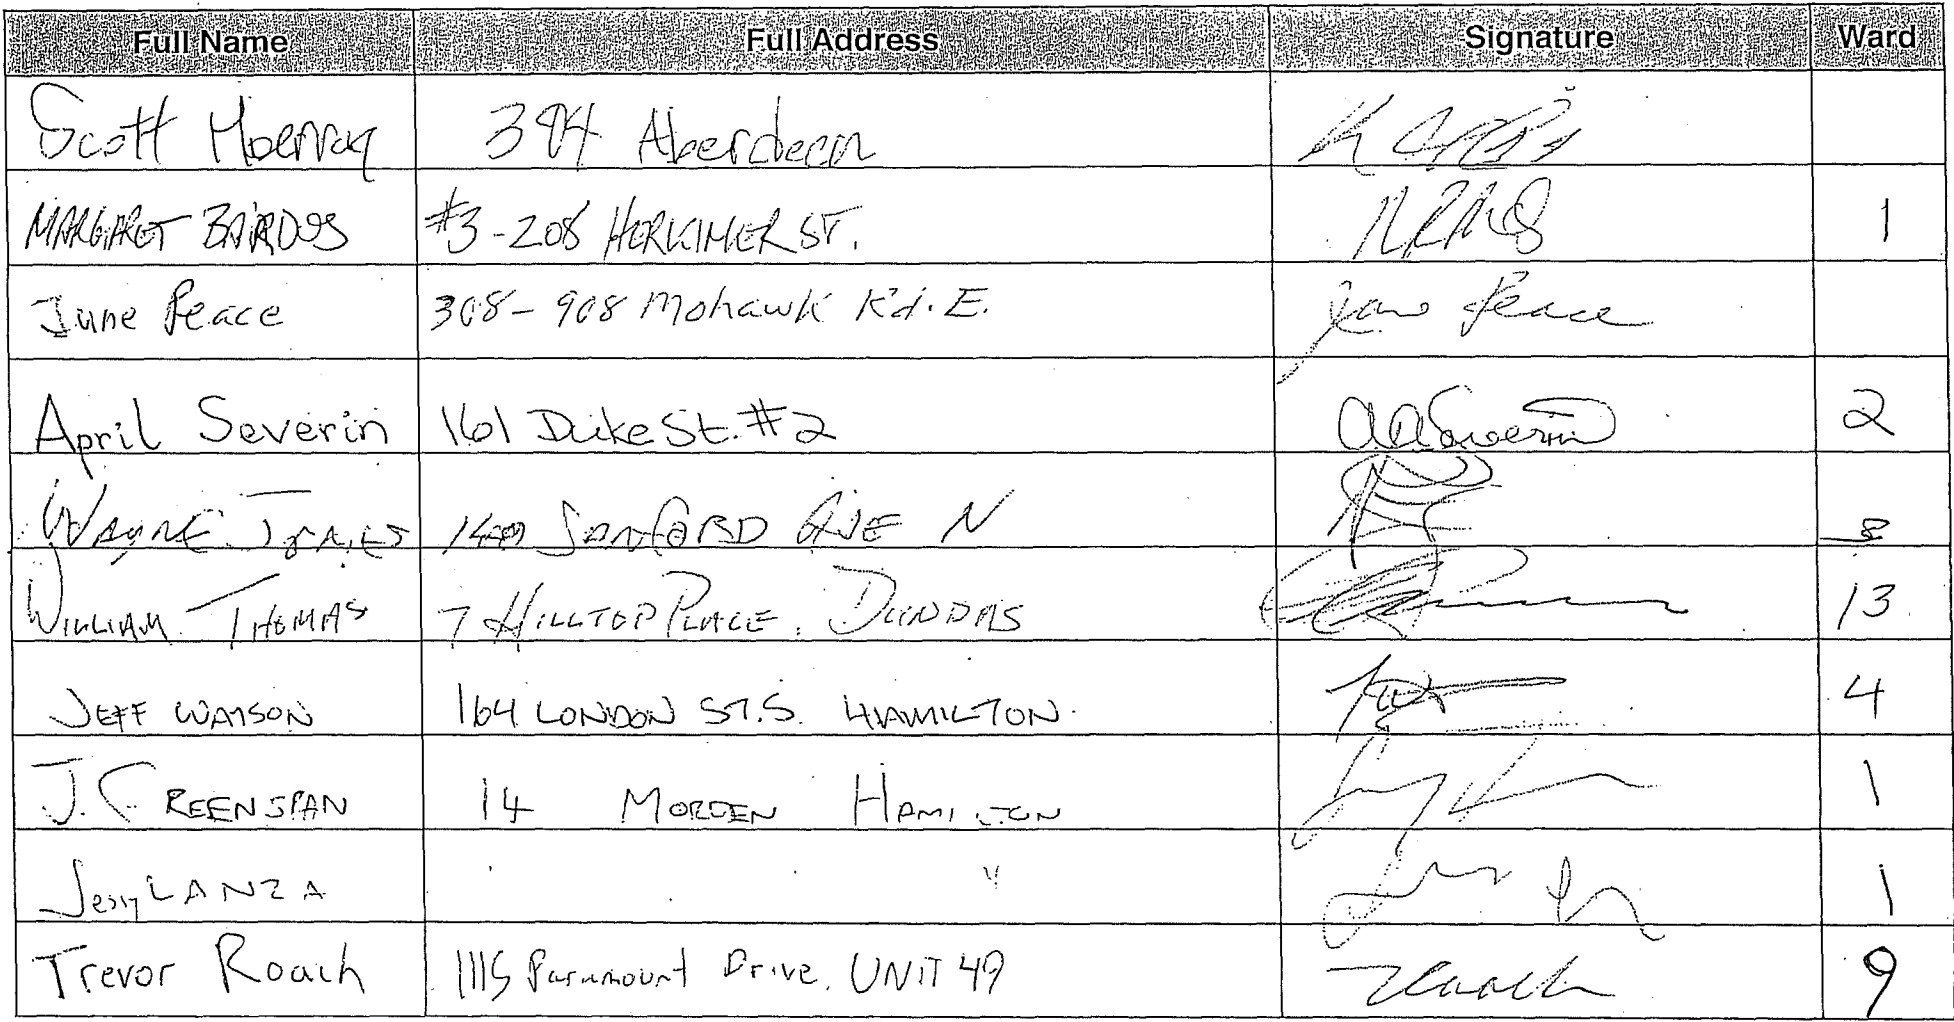 Full Name Full Address Signature Ward
Scott 394 Aberdeen
MARGARET BARDOS #3-208 HERKIMER ST. 1
June Peace 308-908 Mohawk Rd. E. June Peace
April Severin 161 Duke St. #2 AASeverin 2
WAYNE SANFORD AVE N 8
WILLIAM THOMAS 7 HILLTOP PLACE, DUNDAS 13
JEFF WATSON 164 LONDON ST. S. HAMILTON 4
J. GREENSPAN 14 MORDEN HAMILTON 1
Jessy LANZA " 1
Trevor Roach 1115 Paramount Drive, UNIT 49 TRoach 9